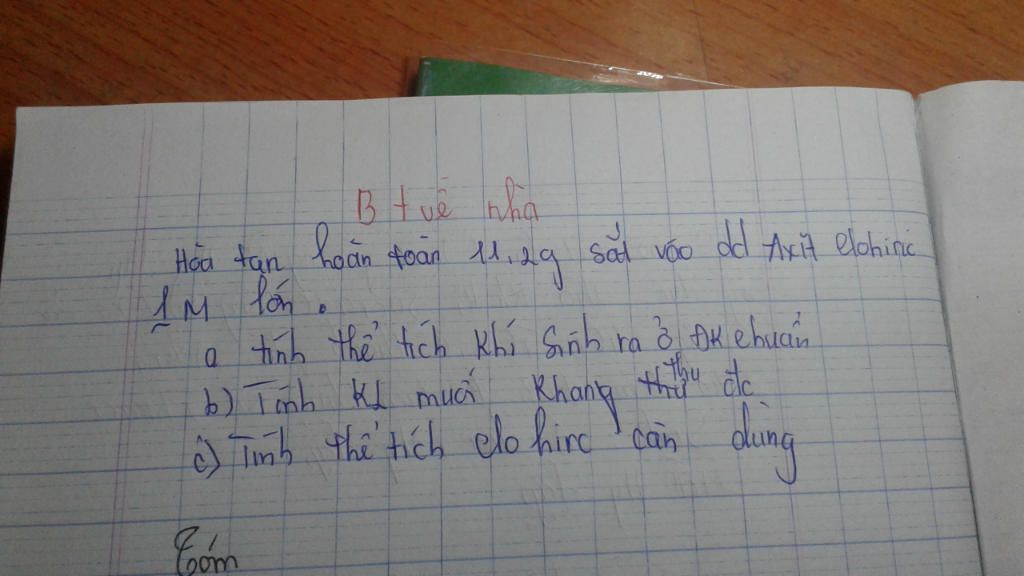 B t về nhà
Hòa tan hoàn toàn 11,2g sắt vào dd Axit clohiric
1M lớn.
a tính thể tích khí sinh ra ở ĐK chuẩn
b) Tính KL muối Khang thu đc
c) Tính thể tích clohirc cần dùng
Tóm